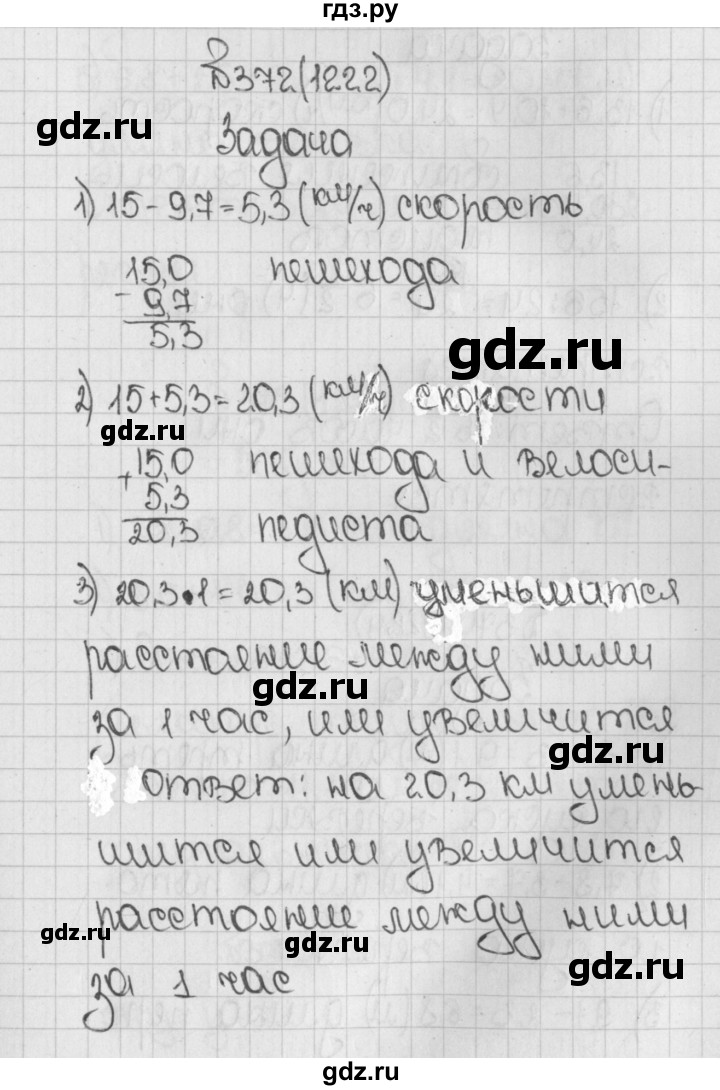 гдз.ру
№372(1222)
gdz.ru
Задача
1) 15 - 9,7 = 5,3 (км/ч) скорость
15,0 пешехода
- 9,7
5,3
gdz.ru
2) 15+5,3=20,3 (км/ч) скорости
gdz.ru
15,0 пешехода и велоси-
+ 5,3
20,3 педиста
3) 20,3•1=20,3 (км) уменьшится
расстояние между ними
gdz.ru
за 1 час, или увеличится
gdz.ru
Ответ: на 20,3 км умень-
шится или увеличится
расстояние между ними
gdz.ru
gdz.ru
за 1 час
gdz.ru
gdz.ru